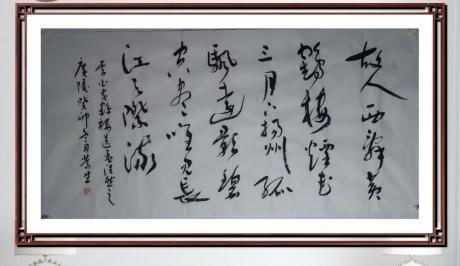 故人西辞黄
鹤楼烟花
三月下扬州孤
帆远影碧
空尽唯见长
江天际流
李白黄鹤楼送孟浩然之
广陵癸卯冬月